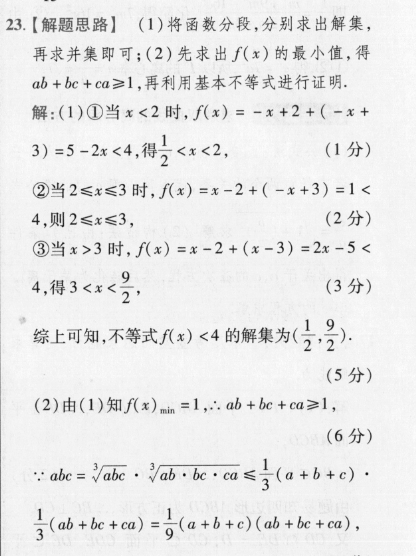 23.【解题思路】 (1)将函数分段,分别求出解集,
再求并集即可;(2)先求出f(x)的最小值,得
ab+bc+ca≥1,再利用基本不等式进行证明.
解:(1)①当x<2时,f(x)=-x+2+(-x+
3)=5-2x<4,得1/2<x<2, (1分)
②当2≤x≤3时,f(x)=x-2+(-x+3)=1<
4,则2≤x≤3, (2分)
③当x>3时,f(x)=x-2+(x-3)=2x-5<
4,得3<x<9/2, (3分)
综上可知,不等式f(x)<4的解集为(1/2,9/2).
(5分)
(2)由(1)知f(x)min=1,∴ab+bc+ca≥1,
(6分)
∵abc=∛abc·∛ab·bc·ca≤1/3(a+b+c)·
1/3(ab+bc+ca)=1/9(a+b+c)(ab+bc+ca),